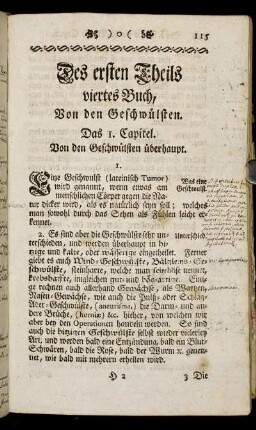 )o( 115
Des ersten Theils
viertes Buch,
Von den Geschwülsten.
Das 1. Capitel.
Von den Geschwülsten überhaupt.
1.
Eine Geschwulst (lateinisch Tumor) Was eine
wird genannt, wenn etwas am Geschwulst
menschlichen Cörper gegen die Na-
tur dicker wird, als es natürlich seyn soll; welches
man sowohl durch das Sehen als Fühlen leicht er-
kennet.
2. Es sind aber die Geschwülste sehr un- unterschied.
terschieden, und werden überhaupt in hi-
tzige und kalte, oder wäßerige eingetheilet. Ferner
giebt es auch Wind-Geschwülste,
schwülste, steinharte, welche man scirrhöse nennet,
krebshaffte, ingleichen gut- und bös-artige. Eini-
ge rechnen auch allerhand Gewächse, als Wartzen,
Nasen-Gewächse, wie auch die Puls- oder Schlag-
Ader-Geschwulst, (aneurisma,) die Darm- und an-
dere Brüche, (herniæ) &c. hieher, von welchen wir
aber bey den Operationen handeln werden. So sind
auch die hitzigen Geschwülste selbst wieder vielerley
Art, und werden bald eine Entzündung, bald ein Blut-
Schwären, bald die Rose, bald der Wurm ꝛc. genen-
net, wie bald mit mehrern erhellen wird.
H 2 3 Die